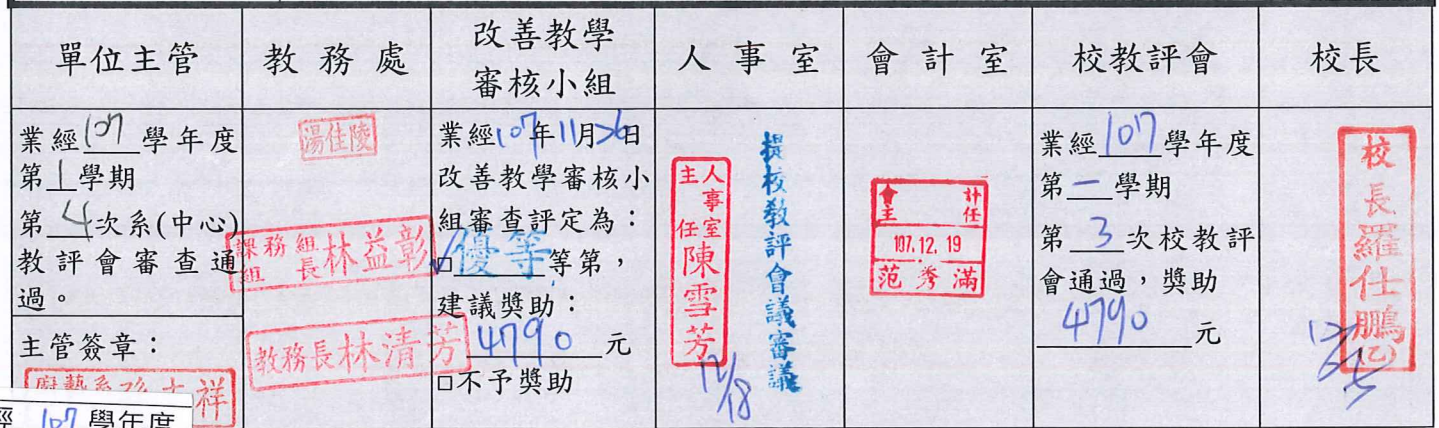 單位主管
教務處
改善教學
審核小組
人事室
會計室
校教評會
校長
業經107學年度
第1學期
第4次系(中心)
教評會審查通
過。
主管簽章：
祥
湯佳陵
課務組
組長林益彰
教務長林清芳
業經107年11月26日
改善教學審核小
組審查評定為：
☑優等等第，
建議獎助：
4790元
□不予獎助
人事室
主任陳雪芳
12/18
提校教評會議審議
會計
主任
107.12.19
范秀滿
業經107學年度
第一學期
第3次校教評
會通過，獎助
4790元
校長羅仕鵬(乙)
經107學年度